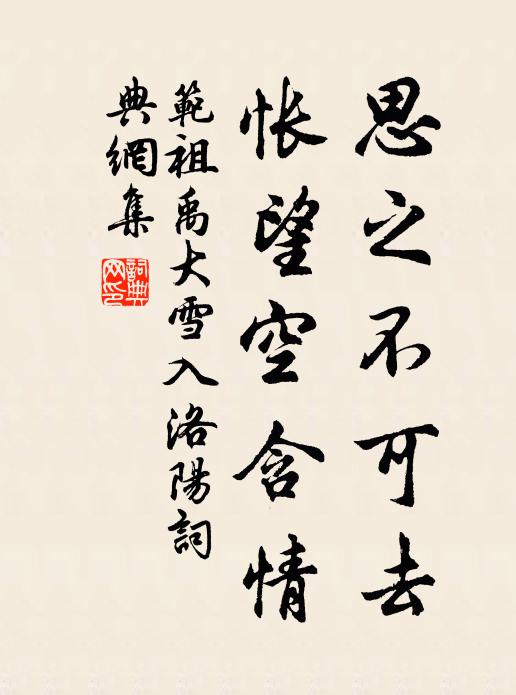 思之不可去
悵望空含情
範祖禹大雪入洛陽詞
典網集
詞典
网印